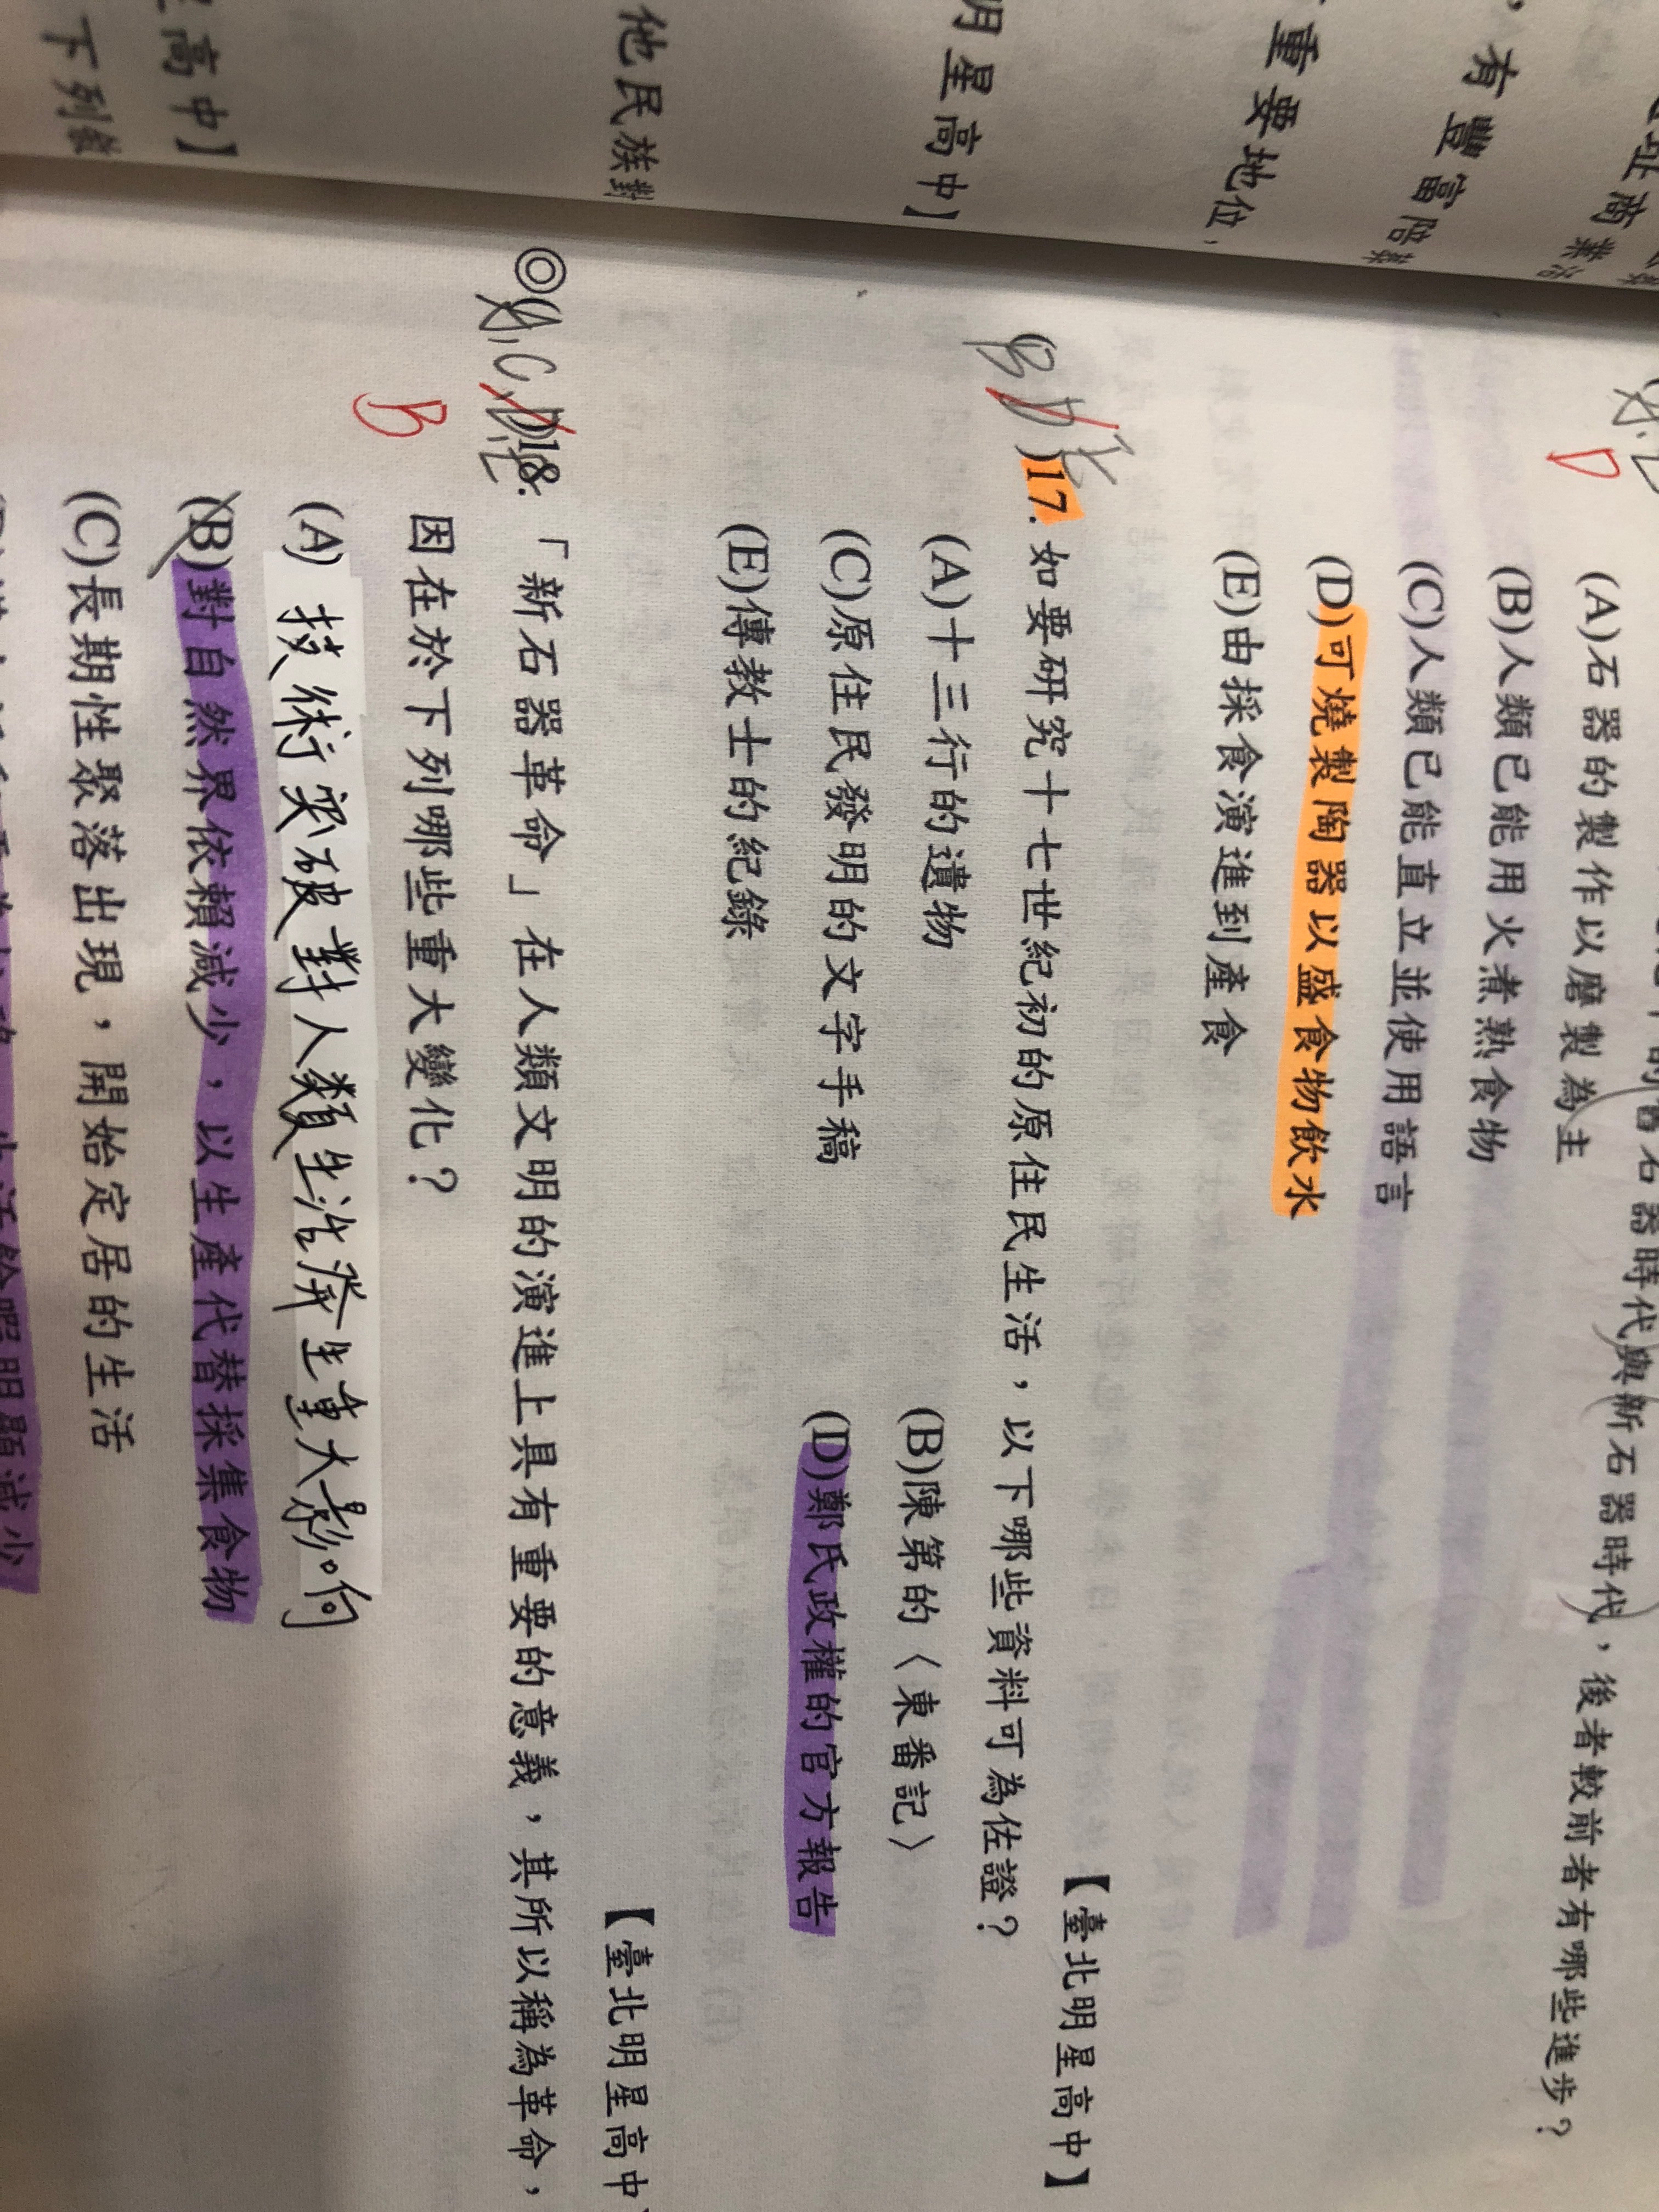 的舊石器時代與新石器時代，後者較前者有哪些進步？
(A)石器的製作以磨製為主
(B)人類已能用火煮熟食物
(C)人類已能直立並使用語言
(D)可燒製陶器以盛食物飲水
(E)由採食演進到產食
D
【臺北明星高中】
B D E
)17.如要研究十七世紀初的原住民生活，以下哪些資料可為佐證？
(A)十三行的遺物
(B)陳第的〈東番記〉
(C)原住民發明的文字手稿
(D)鄭氏政權的官方報告
(E)傳教士的紀錄
【臺北明星高中
◎(
)18.「新石器革命」在人類文明的演進上具有重要的意義，其所以稱為革命，
因在於下列哪些重大變化？
B
(A) 技術突破對人類生活發生重大影响
(B)對自然界依賴減少，以生產代替採集食物
(C)長期性聚落出現，開始定居的生活
明顯減少
，有豐富陪葬
重要地位，
明星高中】
他民族對
高中】
下列